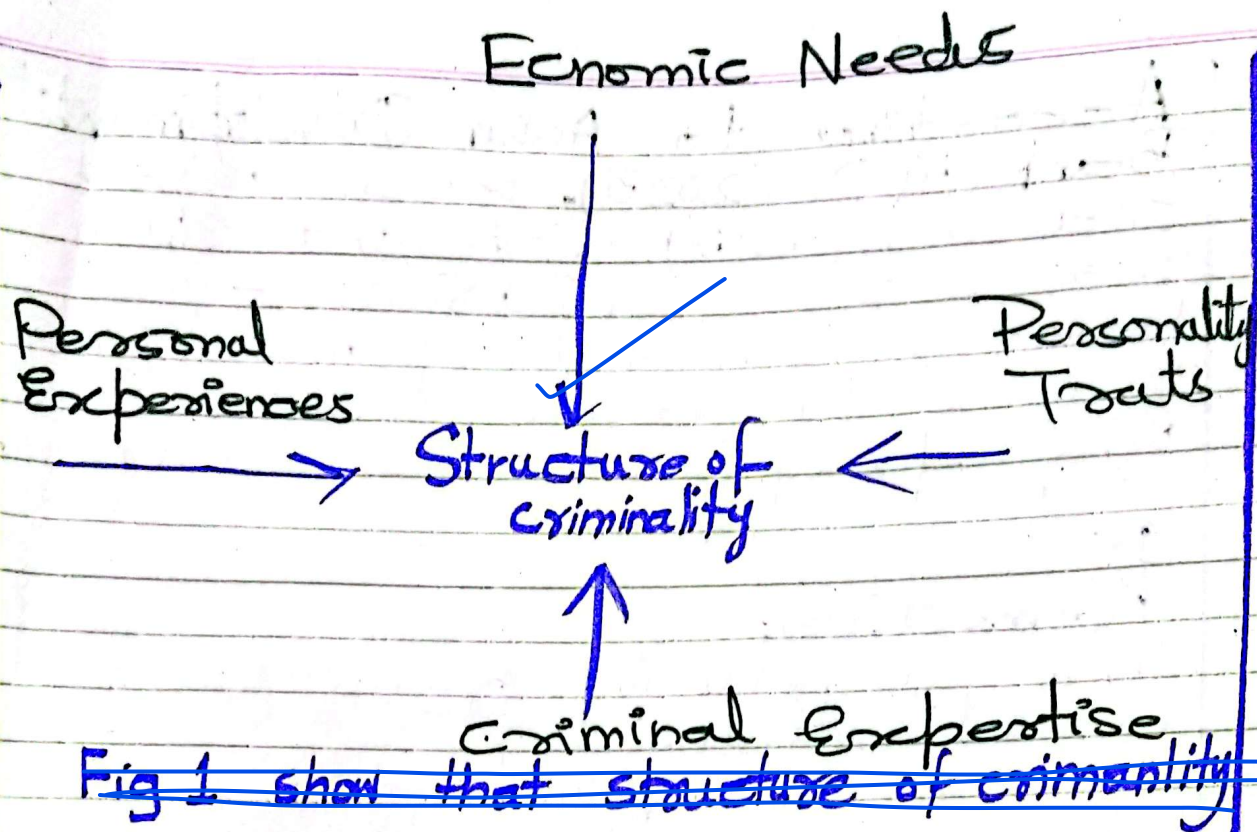 Ecnomic Needs
Personal
Experiences
Personality
Traits
Structure of
criminality
Criminal Expertise
Fig 1 show that structure of crimanlity